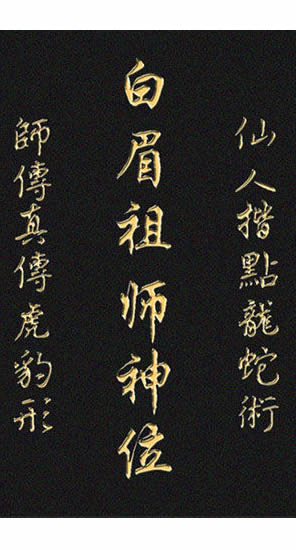 仙人撍點龍蛇術
白眉祖师神位
師傳真傳虎豹形